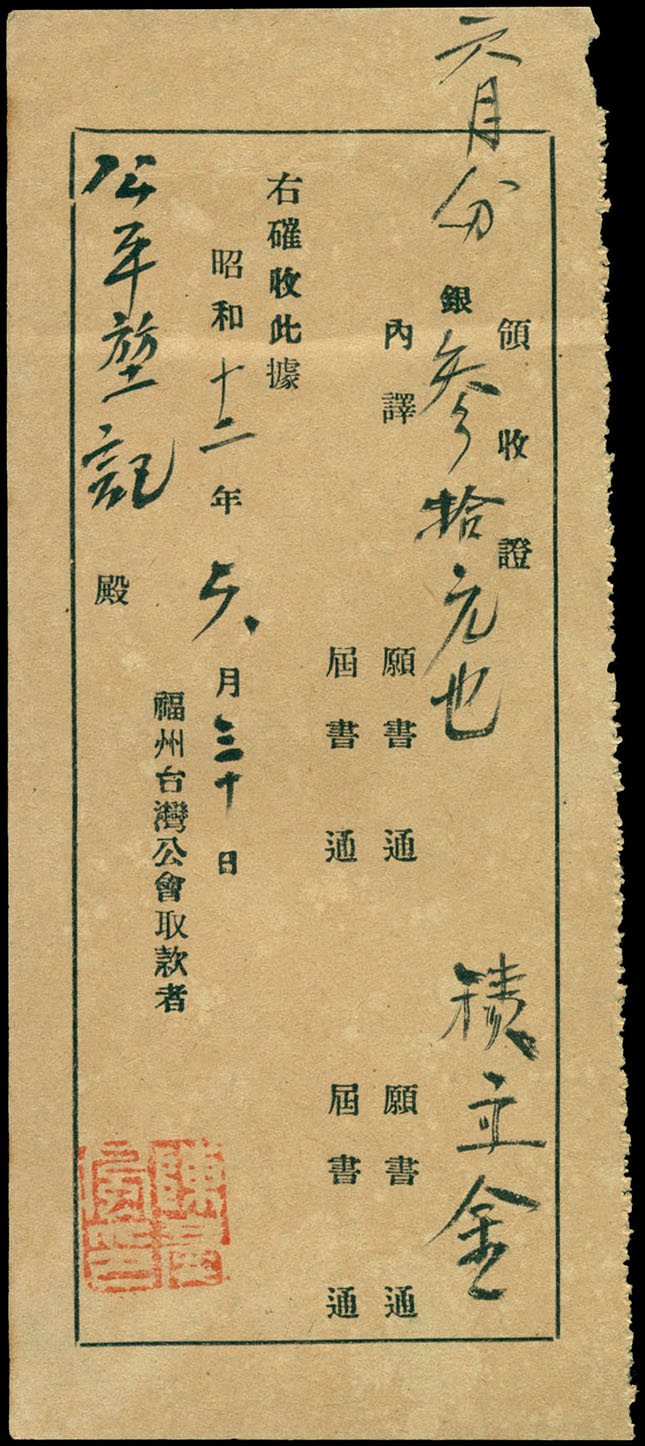 六月份
領收證
銀叁拾元也 積立金
內譯
願書 通 願書 通
屆書 通 屆書 通
右確收此據
昭和十二年六月三十日
福州台灣公會取款者
公平堃記 殿